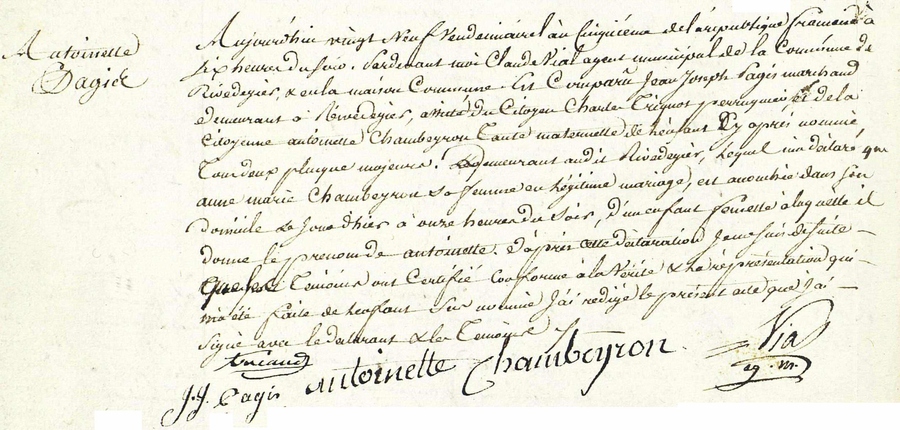 Antoinette
Pagiés
Aujourd'hui vingt Neuf Vendemiaire l'an Cinqiéme de la republique francaise à
Six heures du soir. Perdevant moi Claude Vial agent municipal de la Commune de
Rivedegier, & en la maison Commune Est Comparu Jean Joseph Pagés marchand
demeurant à Rivedegier, assisté du Citoyen Charle perruquier, et de la
Citoyenne antoinette Chambeyron Tante maternelle de l'enfant Cy aprés nommé
Tou deux plusque majeurs, demeurant audit Rivedegier, Lequel ma déclaré que
anne marie Chambeyron Sa femme en légitime mariage, est accouchée dans Son
Domicile Le Jour d'hier à onze heures du Soir, D'un enfant femelle à laquelle il
donne le prenom de antoinette. D'aprés cette déclaration Jemesuis de Suite
que les Témoins ont Certifié Conforme à la Vérité & La représentation qui
m'a été faite de lenfant Sus nommé J'ai redigé le présent acte que J'ai
Signé avec le declarant & les Témoins
J. J. Pagis antoinette Chambeyron Vial
ag. m.